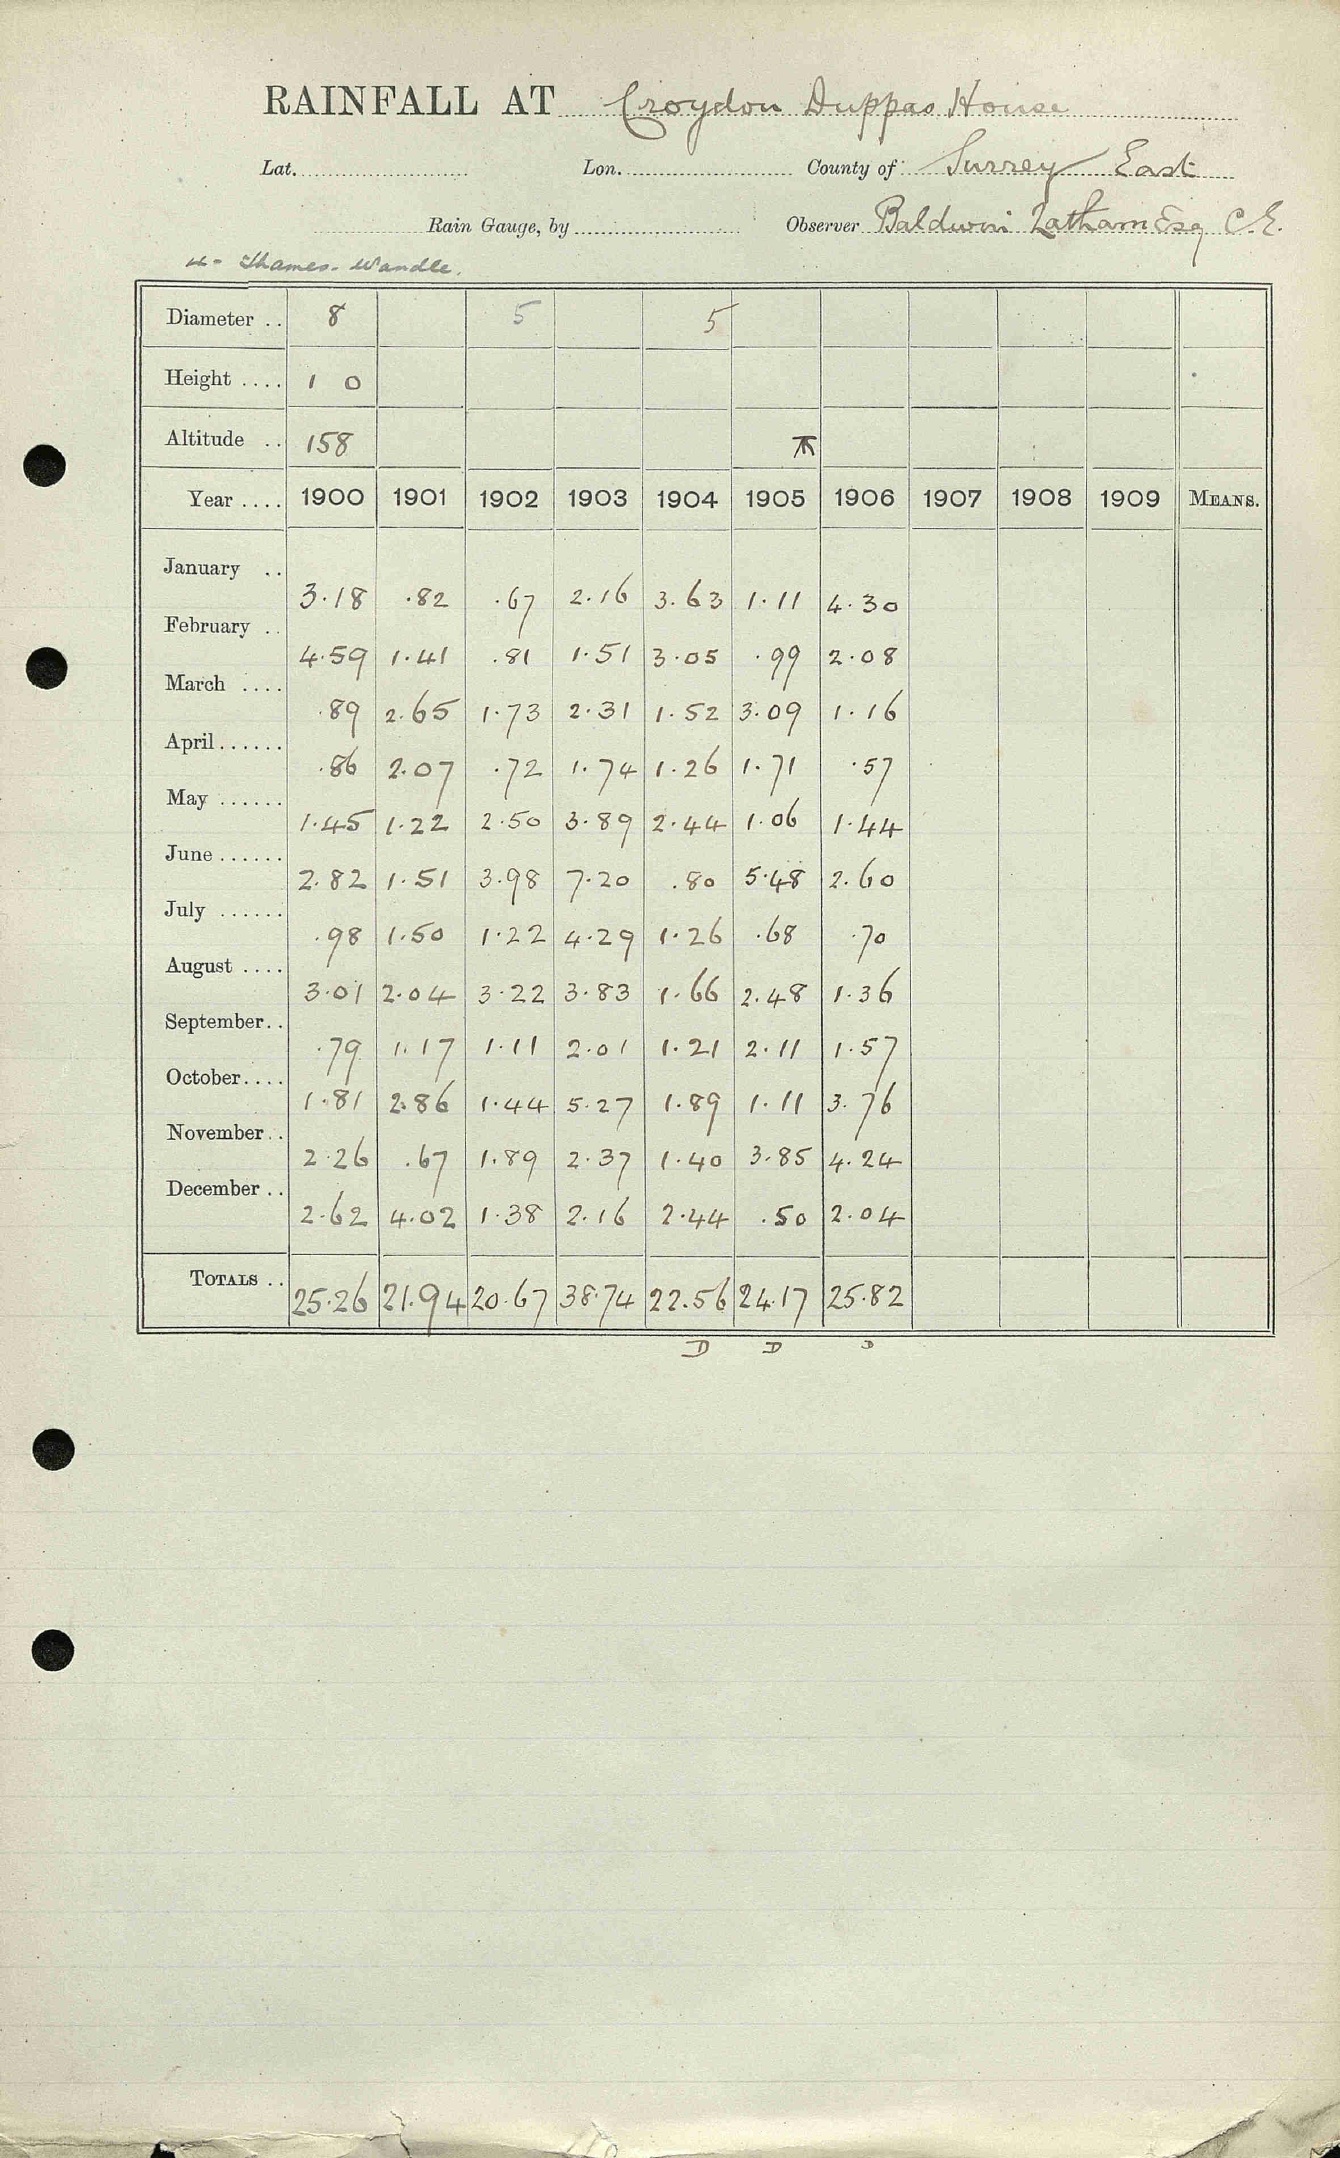 RAINFALL AT Croydon Duppas House
Lat. Lon. County of Surrey East
Rain Gauge, by Observer Baldwin Latham Esq C.E.
Thames - Wandle.
Diameter .. 8 5 5
Height .... 1 0
Altitude .. 158
Year .... 1900 1901 1902 1903 1904 1905 1906 1907 1908 1909 MEANS.
January .. 3.18 .82 .67 2.16 3.63 1.11 4.30
February .. 4.59 1.41 .81 1.51 3.05 .99 2.08
March .... .89 2.65 1.73 2.31 1.52 3.09 1.16
April ...... .86 2.07 .72 1.74 1.26 1.71 .57
May ...... 1.45 1.22 2.50 3.89 2.44 1.06 1.44
June ...... 2.82 1.51 3.98 7.20 .80 5.48 2.60
July ...... .98 1.50 1.22 4.29 1.26 .68 .70
August .... 3.01 2.04 3.22 3.83 1.66 2.48 1.36
September .. .79 1.17 1.11 2.01 1.21 2.11 1.57
October .... 1.81 2.86 1.44 5.27 1.89 1.11 3.76
November .. 2.26 .67 1.89 2.37 1.40 3.85 4.24
December .. 2.62 4.02 1.38 2.16 2.44 .50 2.04
TOTALS .. 25.26 21.94 20.67 38.74 22.56 24.17 25.82
D D D